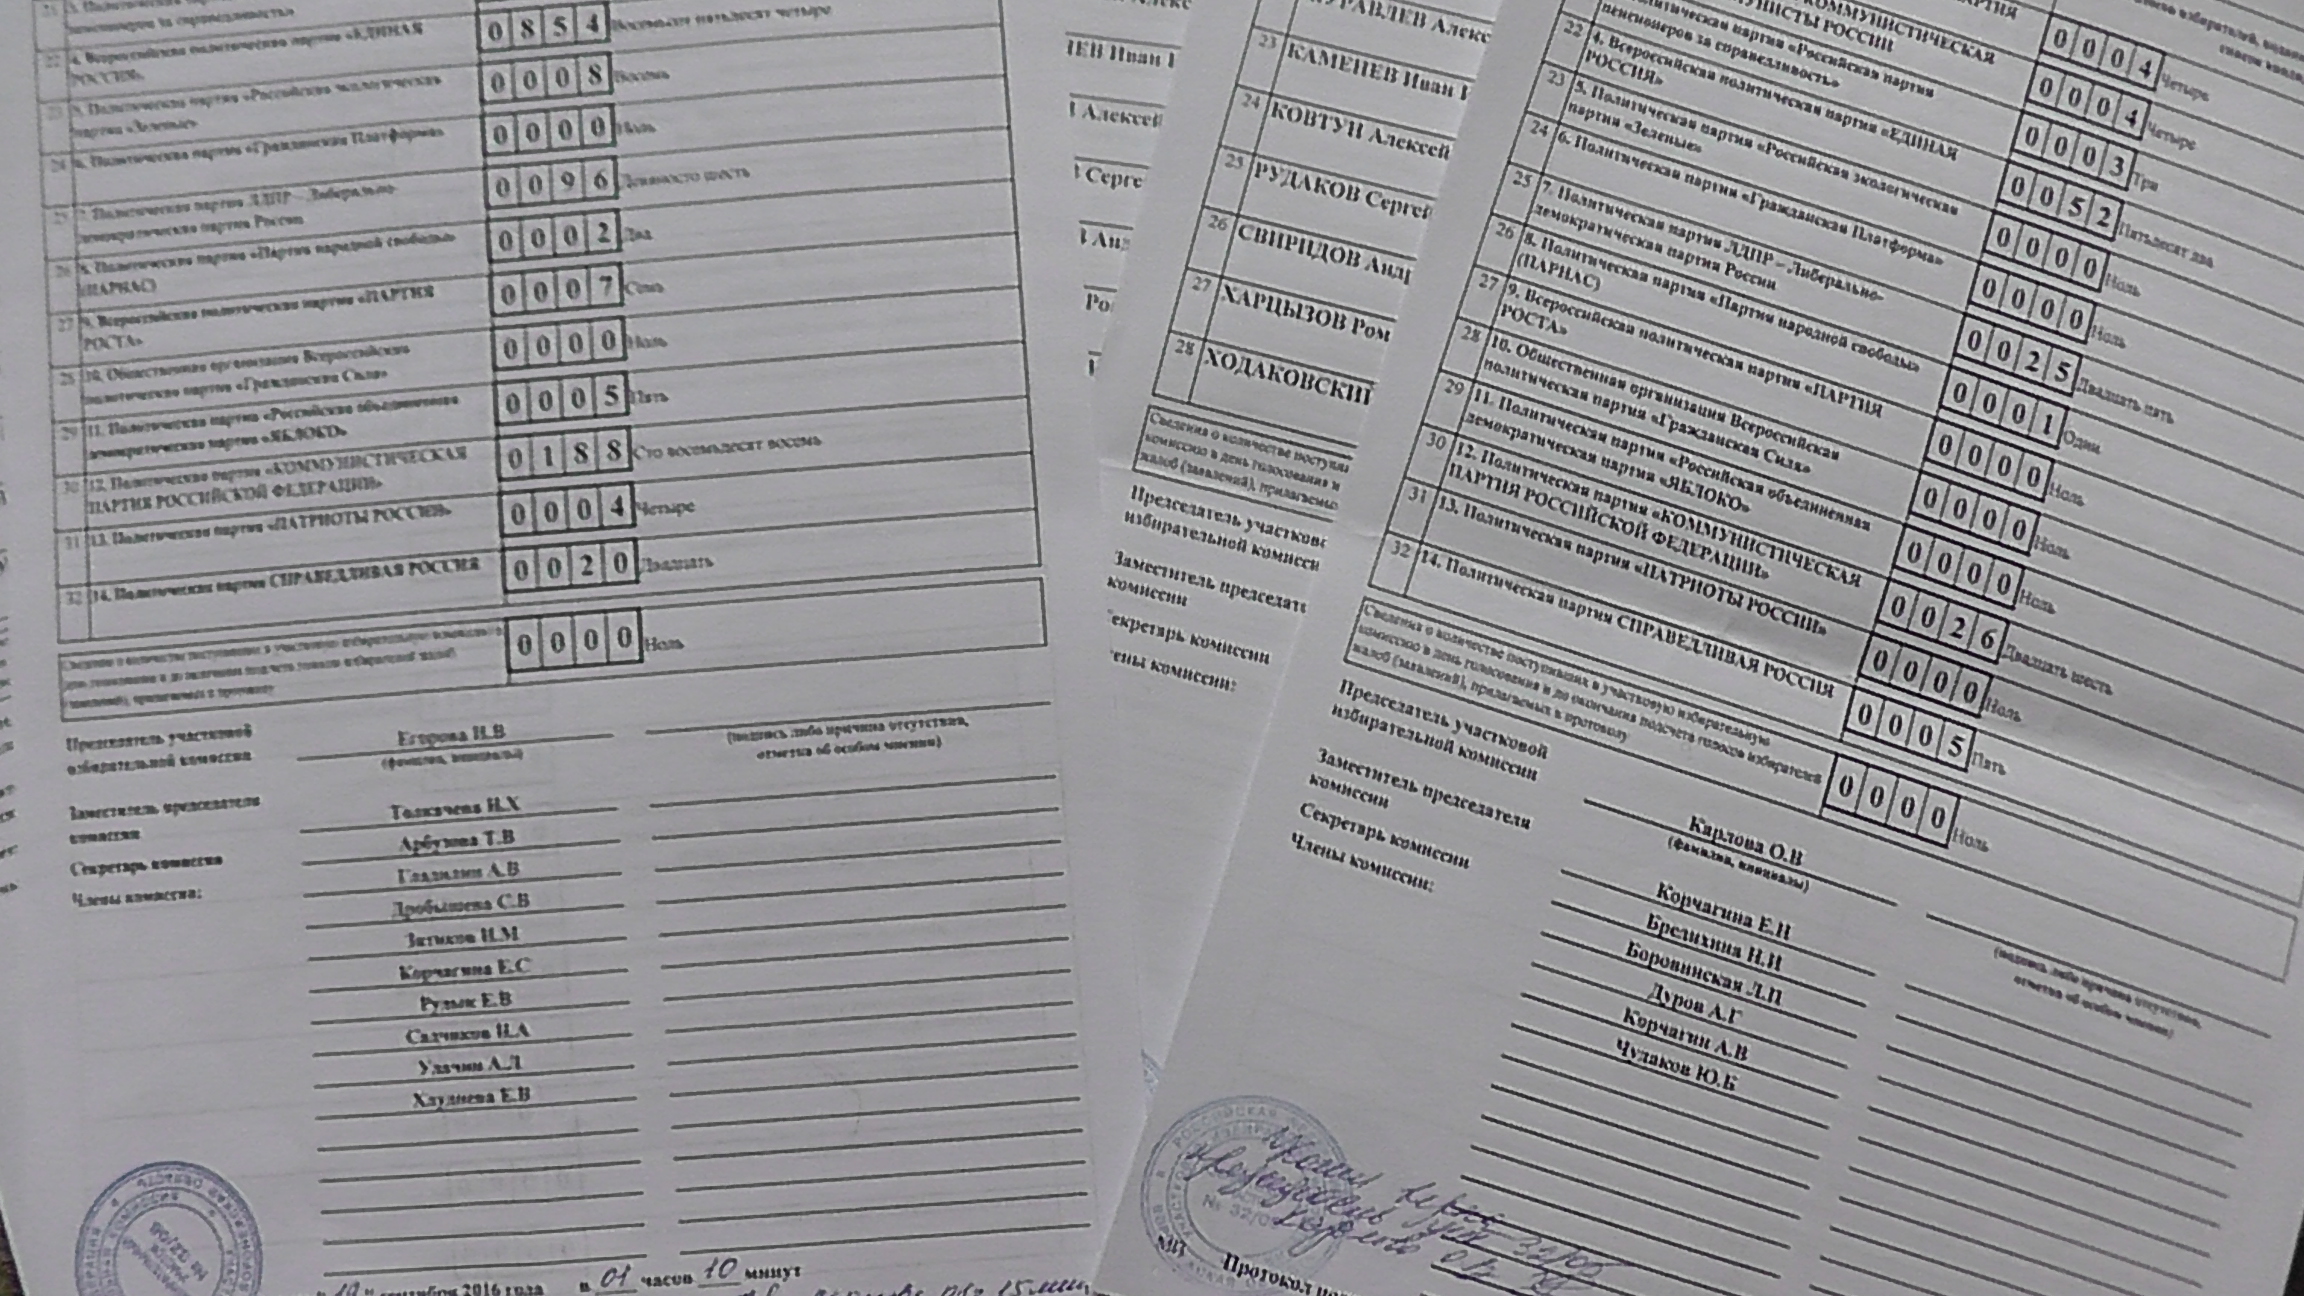 22 4. Всероссийская политическая партия «ЕДИНАЯ
РОССИЯ»
0854 Восемьсот пятьдесят четыре
23 5. Политическая партия «Российская экологическая
партия «Зеленые»
0008 Восемь
24 6. Политическая партия «Гражданская Платформа»
0000 Ноль
25 7. Политическая партия ЛДПР – Либерально-
демократическая партия России
0096 Девяносто шесть
26 8. Политическая партия «Партия народной свободы»
(ПАРНАС)
0002 Два
27 9. Всероссийская политическая партия «ПАРТИЯ
РОСТА»
0007 Семь
28 10. Общественная организация Всероссийская
политическая партия «Гражданская Сила»
0000 Ноль
29 11. Политическая партия «Российская объединенная
демократическая партия «ЯБЛОКО»
0005 Пять
30 12. Политическая партия «КОММУНИСТИЧЕСКАЯ
ПАРТИЯ РОССИЙСКОЙ ФЕДЕРАЦИИ»
0188 Сто восемьдесят восемь
31 13. Политическая партия «ПАТРИОТЫ РОССИИ»
0004 Четыре
32 14. Политическая партия СПРАВЕДЛИВАЯ РОССИЯ
0020 Двадцать
0000 Ноль
Председатель участковой
избирательной комиссии
Егорова Н.В
(фамилия, инициалы)
(подпись либо причина отсутствия,
отметка об особом мнении)
Заместитель председателя
комиссии
Толкачева Н.Х
Секретарь комиссии
Арбузова Т.В
Члены комиссии:
Гладилин А.В
Дробышева С.В
Зятиков Н.М
Корчагина Е.С
Рудык Е.В
Садчиков Н.А
Улачин А.Л
Хаулиева Е.В
" 19 " сентября 2016 года в 01 часов 10 минут
ЕВ Иван
Алексей
Серге
Анд
Ро
УРАВЛЕВ Алекс
23 КАМЕНЕВ Иван
24 КОВТУН Алексей
25 РУДАКОВ Сергей
26 СВИРИДОВ Анд
27 ХАРЦЫЗОВ Ром
28 ХОДАКОВСКИЙ
Сведения о количестве поступи
комиссию в день голосования и
жалоб (заявлений), прилагаемы
Председатель участково
избирательной комисси
Заместитель председате
комиссии
екретарь комиссии
ены комиссии:
КОММУНИСТИЧЕСКАЯ ПАРТИЯ
КОММУНИСТЫ РОССИИ
0004 Четыре
политическая партия «Российская партия
пенсионеров за справедливость»
0004 Четыре
0003 Три
22 4. Всероссийская политическая партия «ЕДИНАЯ
РОССИЯ»
0052 Пятьдесят два
23 5. Политическая партия «Российская экологическая
партия «Зеленые»
0000 Ноль
24 6. Политическая партия «Гражданская Платформа»
0000 Ноль
25 7. Политическая партия ЛДПР – Либерально-
демократическая партия России
0025 Двадцать пять
26 8. Политическая партия «Партия народной свободы»
(ПАРНАС)
0001 Один
27 9. Всероссийская политическая партия «ПАРТИЯ
РОСТА»
0000 Ноль
28 10. Общественная организация Всероссийская
политическая партия «Гражданская Сила»
0000 Ноль
29 11. Политическая партия «Российская объединенная
демократическая партия «ЯБЛОКО»
0000 Ноль
30 12. Политическая партия «КОММУНИСТИЧЕСКАЯ
ПАРТИЯ РОССИЙСКОЙ ФЕДЕРАЦИИ»
0026 Двадцать шесть
31 13. Политическая партия «ПАТРИОТЫ РОССИИ»
0000 Ноль
32 14. Политическая партия СПРАВЕДЛИВАЯ РОССИЯ
0005 Пять
Сведения о количестве поступивших в участковую избирательную
комиссию в день голосования и до окончания подсчета голосов избирателей
жалоб (заявлений), прилагаемых к протоколу
0000 Ноль
Председатель участковой
избирательной комиссии
Карлова О.В
(фамилия, инициалы)
(подпись либо причина отсутствия,
отметка об особом мнении)
Заместитель председателя
комиссии
Корчагина Е.Н
Секретарь комиссии
Брелихина Н.И
Члены комиссии:
Боровинская Л.П
Дуров А.Г
Корчагин А.В
Чудаков Ю.Б